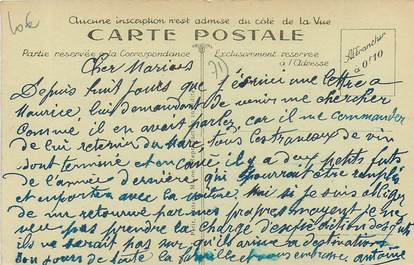 Aucune inscription n'est admise du côté de la Vue
CARTE POSTALE
Partie réservée à la Correspondance
Exclusivement réservée à l'Adresse
Affranchir à 0f10
Cher Marius
Depuis huit jours que j'écrivi une lettre a
Maurice lui demandant de venir me chercher
Comme il en avait parler, car il me commander
de lui retenir du Marc, tous les traveaux de vin
sont terminé et en cave il y a deux petits futs
de l'année dernière qui pourrait être remplé
et emporter avec la voiture. Mai si je suis obliger
de me retourné par mes propres moyent je ne
veu pas prendre la charge d'expédition des futs
ils ne serait pas sur qu'ils arrive a destination
bon jours de toute la famille et vous embrasse. antoine